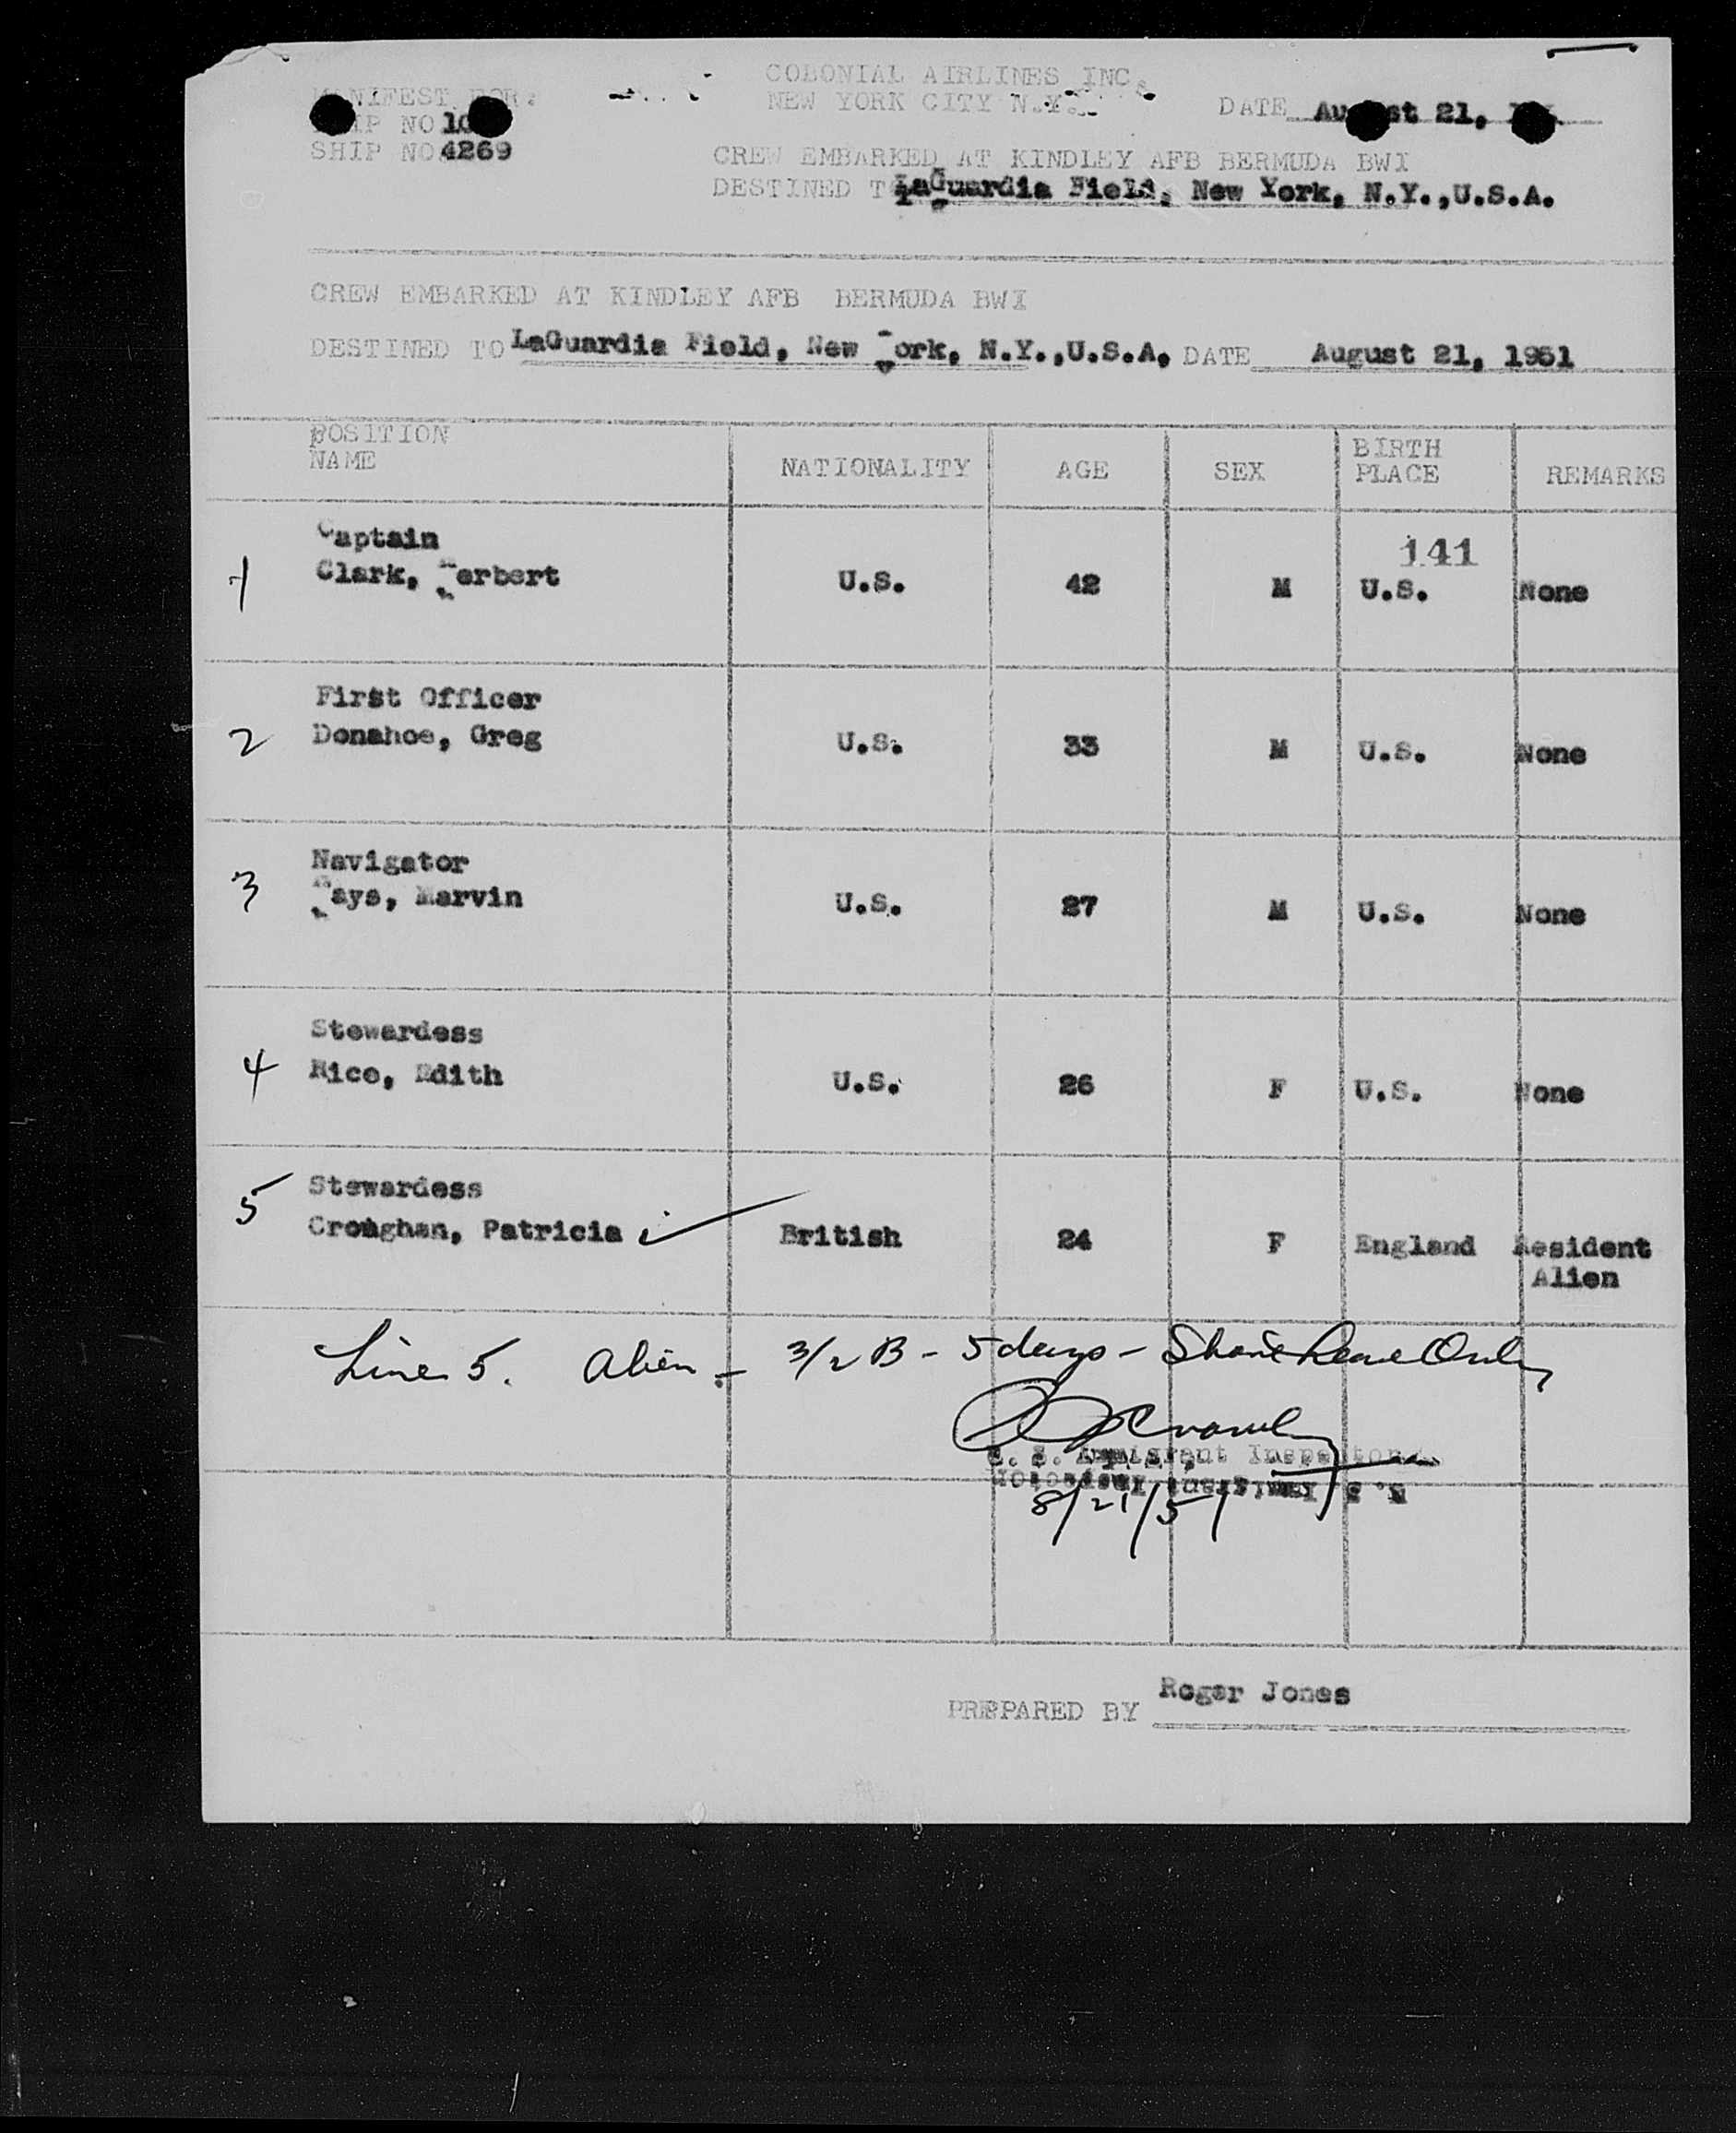 COLONIAL AIRLINES INC.
NEW YORK CITY N.Y.
MANIFEST FOR:
TRIP NO 10
SHIP NO. 4269
DATE August 21,
CREW EMBARKED AT KINDLEY AFB BERMUDA BWI
DESTINED TO LaGuardia Field, New York, N.Y.,U.S.A.
CREW EMBARKED AT KINDLEY AFB BERMUDA BWI
DESTINED TO LaGuardia Field, New York, N.Y.,U.S.A. DATE August 21, 1951
POSITION
NAME NATIONALITY AGE SEX BIRTH PLACE REMARKS
141
Captain
1 Clark, Herbert U.S. 42 M U.S. None
First Officer
2 Donahoe, Greg U.S. 33 M U.S. None
Navigator
3 Hays, Marvin U.S. 27 M U.S. None
Stewardess
4 Rice, Edith U.S. 26 F U.S. None
Stewardess
5 Croughan, Patricia British 24 F England Resident Alien
Line 5. Alien - 3/2 B - 5 days - Shore Leave Only
U. S. Immigrant Inspector
8/21/51
PREPARED BY Roger Jones